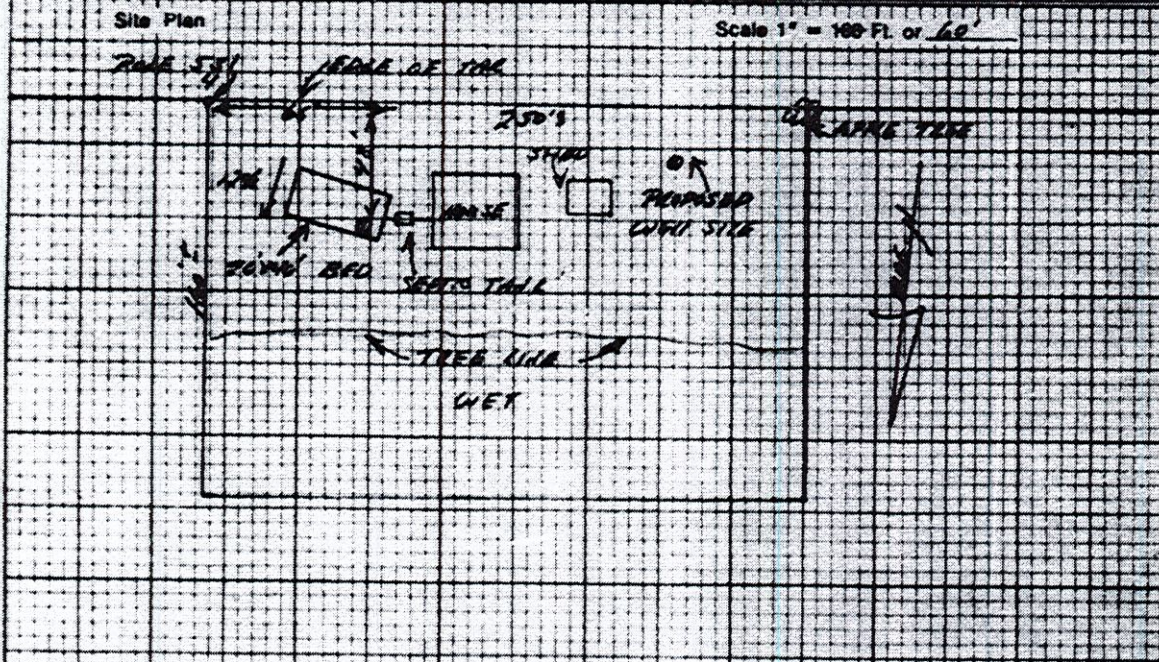 Site Plan
Scale 1" = 100 Ft. or 60'
EDGE OF TAR
250'±
APPLE TREE
SHED
PROPOSED
WELL SITE
HOUSE
BED
SEPTIC TANK
TREE LINE
WET